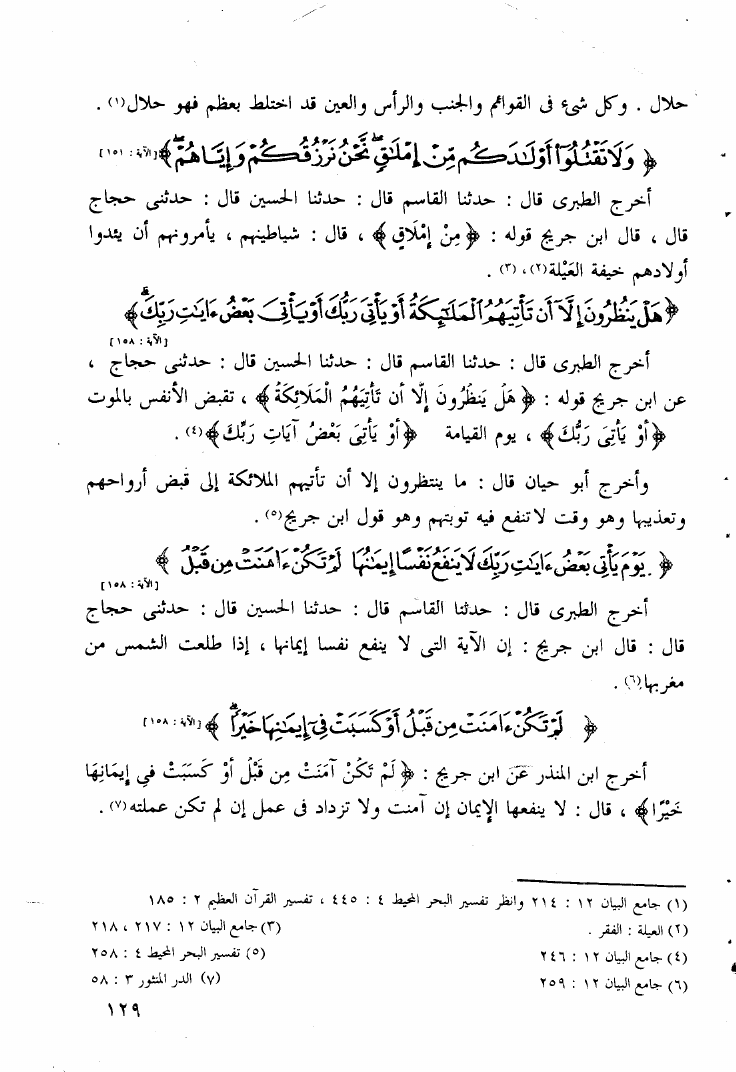 حلال . وكل شىء فى القوائم والجنب والرأس والعين قد اختلط بعظم فهو حلال(١) .
﴿ وَلَا تَقْتُلُوٓا۟ أَوْلَٰدَكُم مِّنْ إِمْلَٰقٍ ۖ نَّحْنُ نَرْزُقُكُمْ وَإِيَّاهُمْ ۖ ﴾ [الآية : ١٥١]
أخرج الطبرى قال : حدثنا القاسم قال : حدثنا الحسين قال : حدثنى حجاج
قال ، قال ابن جريج قوله : ﴿ مِنْ إِمْلَاقٍ ﴾ ، قال : شياطينهم ، يأمرونهم أن يئدوا
أولادهم خيفة العَيْلة(٢)، (٣) .
﴿ هَلْ يَنظُرُونَ إِلَّآ أَن تَأْتِيَهُمُ ٱلْمَلَٰٓئِكَةُ أَوْ يَأْتِىَ رَبُّكَ أَوْ يَأْتِىَ بَعْضُ ءَايَٰتِ رَبِّكَ ۗ ﴾
[الآية : ١٥٨]
أخرج الطبرى قال : حدثنا القاسم قال : حدثنا الحسين قال : حدثنى حجاج ،
عن ابن جريج قوله : ﴿ هَلْ يَنظُرُونَ إِلَّا أَن تَأْتِيَهُمُ الْمَلَائِكَةُ ﴾ ، تقبض الأنفس بالموت
﴿ أَوْ يَأْتِىَ رَبُّكَ ﴾ ، يوم القيامة ﴿ أَوْ يَأْتِىَ بَعْضُ آيَاتِ رَبِّكَ ﴾(٤) .
وأخرج أبو حيان قال : ما ينتظرون إلا أن تأتيهم الملائكة إلى قبض أرواحهم
وتعذيبها وهو وقت لاتنفع فيه توبتهم وهو قول ابن جريج(٥) .
﴿ يَوْمَ يَأْتِى بَعْضُ ءَايَٰتِ رَبِّكَ لَا يَنفَعُ نَفْسًا إِيمَٰنُهَا لَمْ تَكُنْ ءَامَنَتْ مِن قَبْلُ ﴾
[الآية : ١٥٨]
أخرج الطبرى قال : حدثنا القاسم قال : حدثنا الحسين قال : حدثنى حجاج
قال : قال ابن جريج : إن الآية التى لا ينفع نفسا إيمانها ، إذا طلعت الشمس من
مغربها(٦) .
﴿ لَمْ تَكُنْ ءَامَنَتْ مِن قَبْلُ أَوْ كَسَبَتْ فِىٓ إِيمَٰنِهَا خَيْرًا ۗ ﴾ [الآية : ١٥٨]
أخرج ابن المنذر عَن ابن جريج : ﴿ لَمْ تَكُنْ آمَنَتْ مِن قَبْلُ أَوْ كَسَبَتْ فِى إِيمَانِهَا
خَيْرًا ﴾ ، قال : لا ينفعها الإيمان إن آمنت ولا تزداد فى عمل إن لم تكن عملته(٧) .
(١) جامع البيان ١٢ : ٢١٤ وانظر تفسير البحر المحيط ٤ : ٤٤٥ ، تفسير القرآن العظيم ٢ : ١٨٥
(٢) العيلة : الفقر . (٣) جامع البيان ١٢ : ٢١٧ ، ٢١٨
(٤) جامع البيان ١٢ : ٢٤٦ (٥) تفسير البحر المحيط ٤ : ٢٥٨
(٦) جامع البيان ١٢ : ٢٥٩ (٧) الدر المنثور ٣ : ٥٨
١٢٩